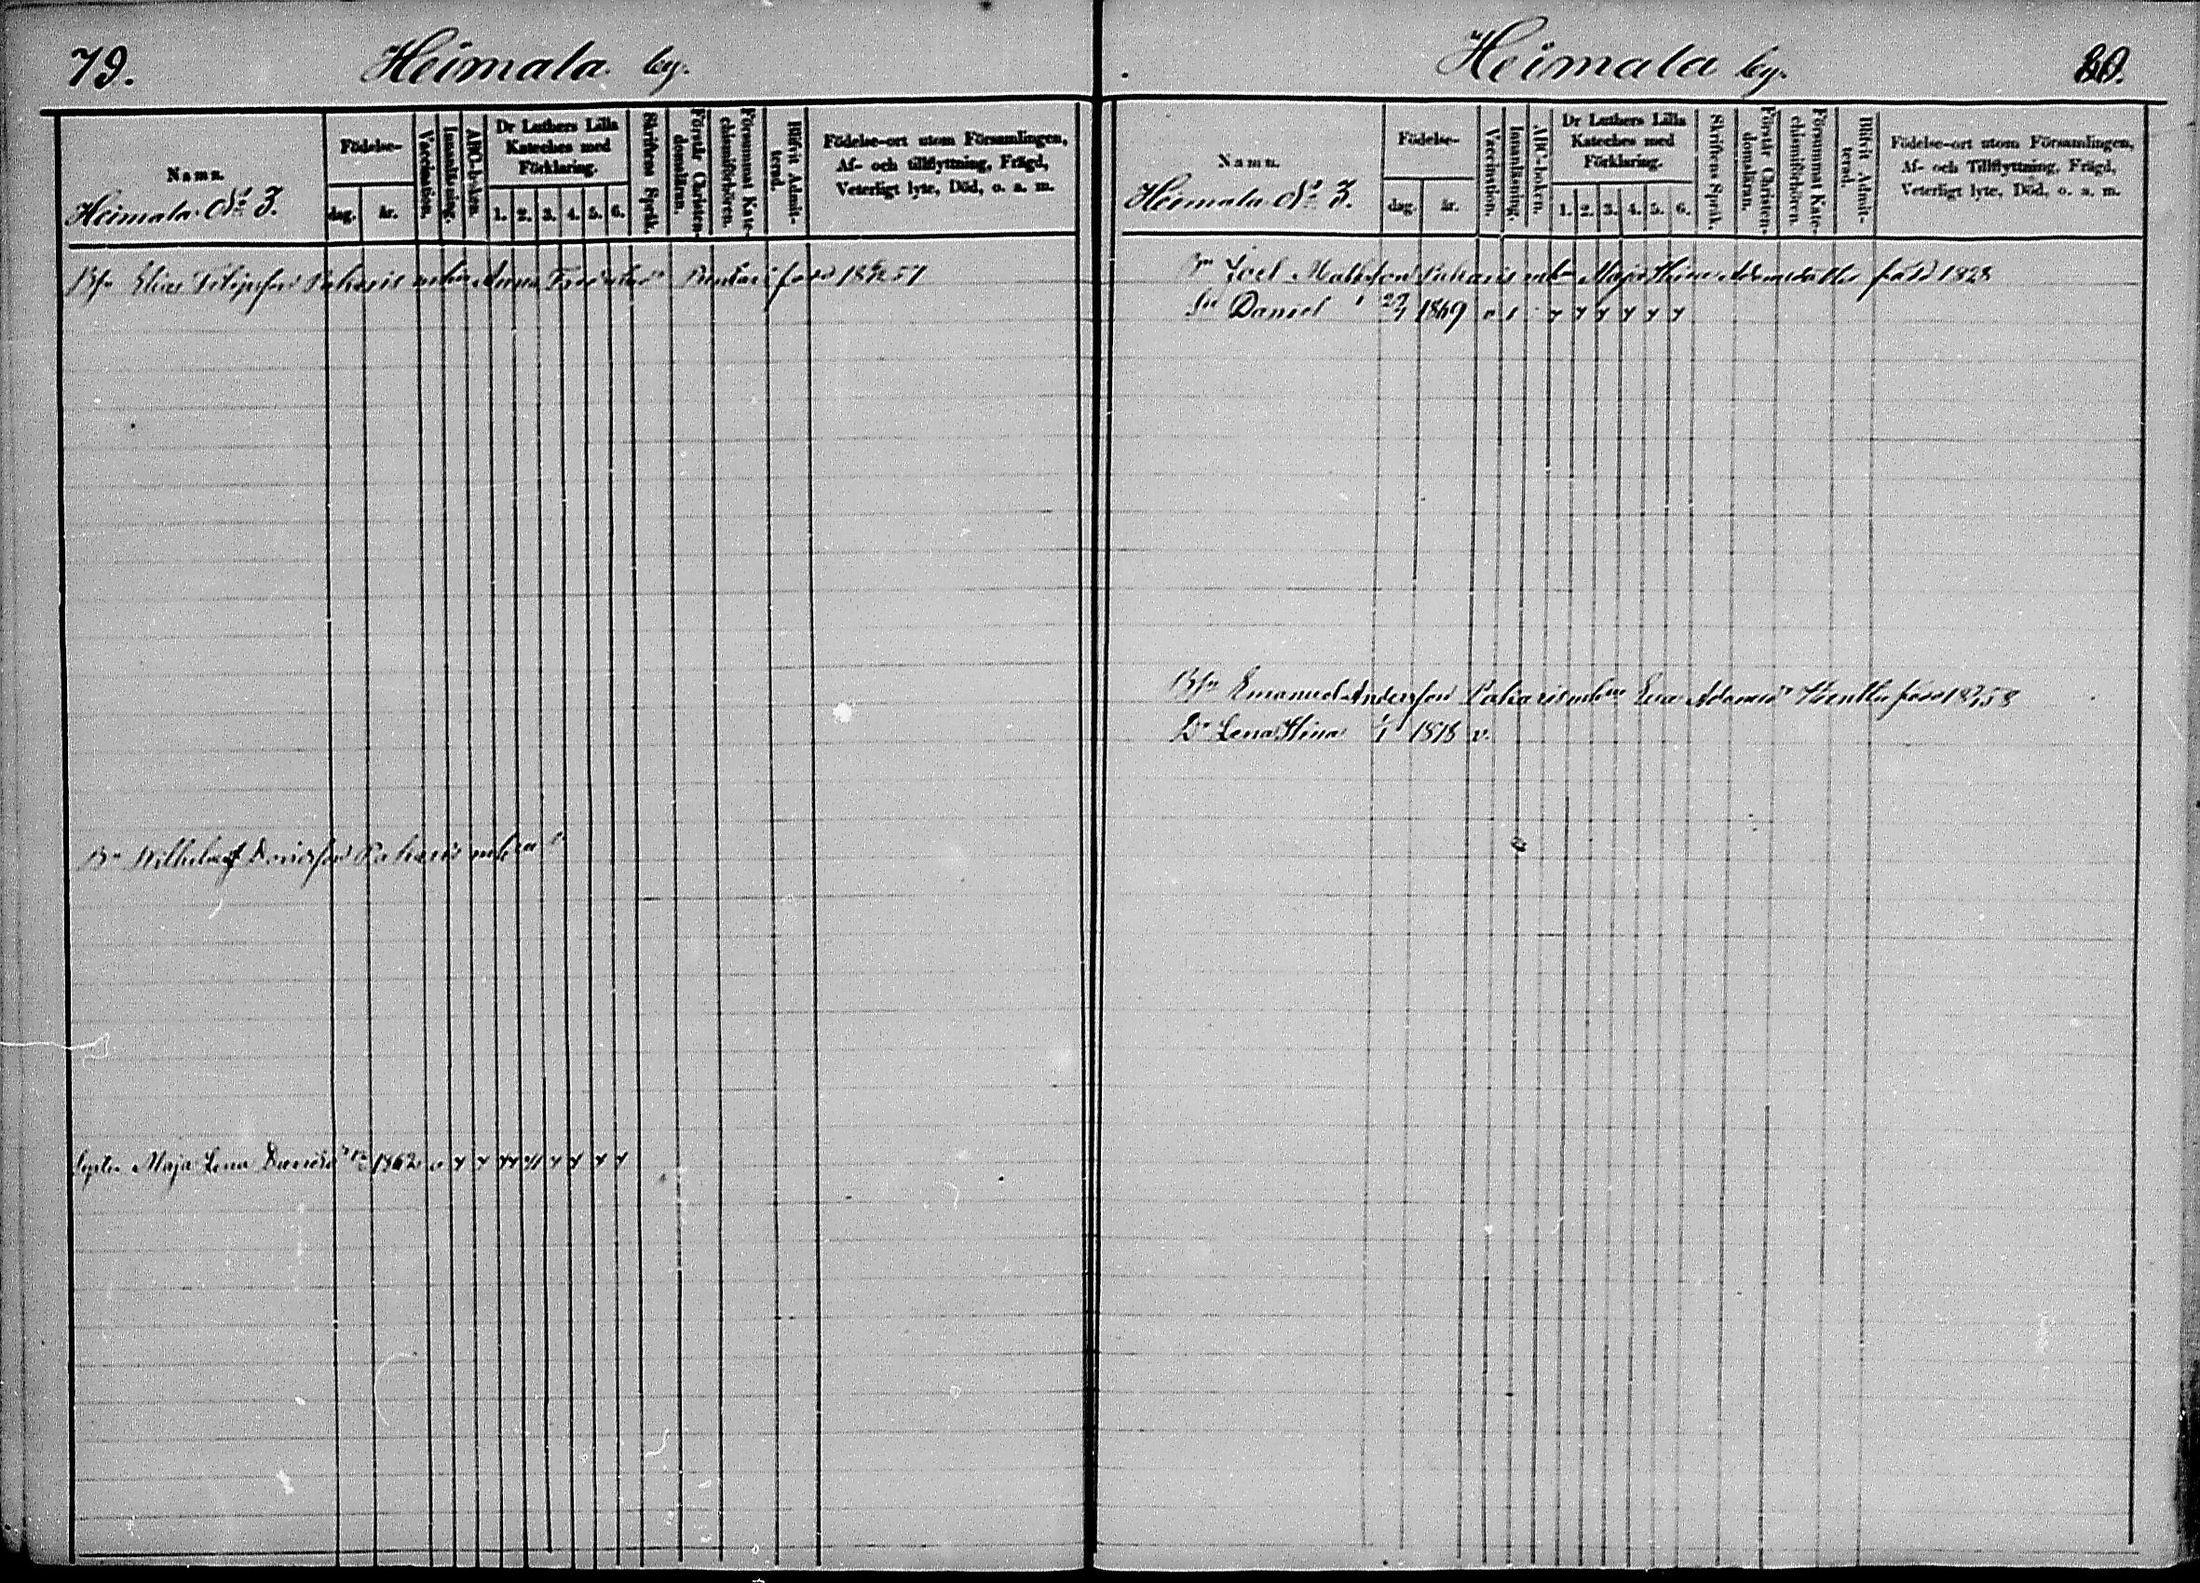 79.
Heimala by.
Namn.
Heimala No 3.
Födelse-
dag. år.
Vaccination.
Innanläsning.
ABC-boken.
Dr Luthers Lilla
Kateches med
Förklaring.
1. 2. 3. 4. 5. 6.
Skriftens Språk.
Förstår Christen-
domsläran.
Försummat Kate-
chismiförhören.
Blifvit Admit-
terad.
Födelse-ort utom Församlingen,
Af- och tillflyttning, Frägd,
Veterligt lyte, Död, o. a. m.
Elias Filipsson Paharis Anna
Wilhelm Davidsson Paharis
Maja Lena 1862
Heimala by.
80.
Namn.
Heimala No 3.
Födelse-
dag. år.
Vaccination.
Innanläsning.
ABC-boken.
Dr Luthers Lilla
Kateches med
Förklaring.
1. 2. 3. 4. 5. 6.
Skriftens Språk.
Förstår Christen-
domsläran.
Försummat Kate-
chismiförhören.
Blifvit Admit-
terad.
Födelse-ort utom Församlingen,
Af- och Tillflyttning, Frägd,
Veterligt lyte, Död, o. a. m.
Joel Matsson Paharis Maja Stina Adamsdotter född 1828
Daniel 1869
Emanuel Andersson Paharis Eva
Lena Stina 1/1 1878 v.